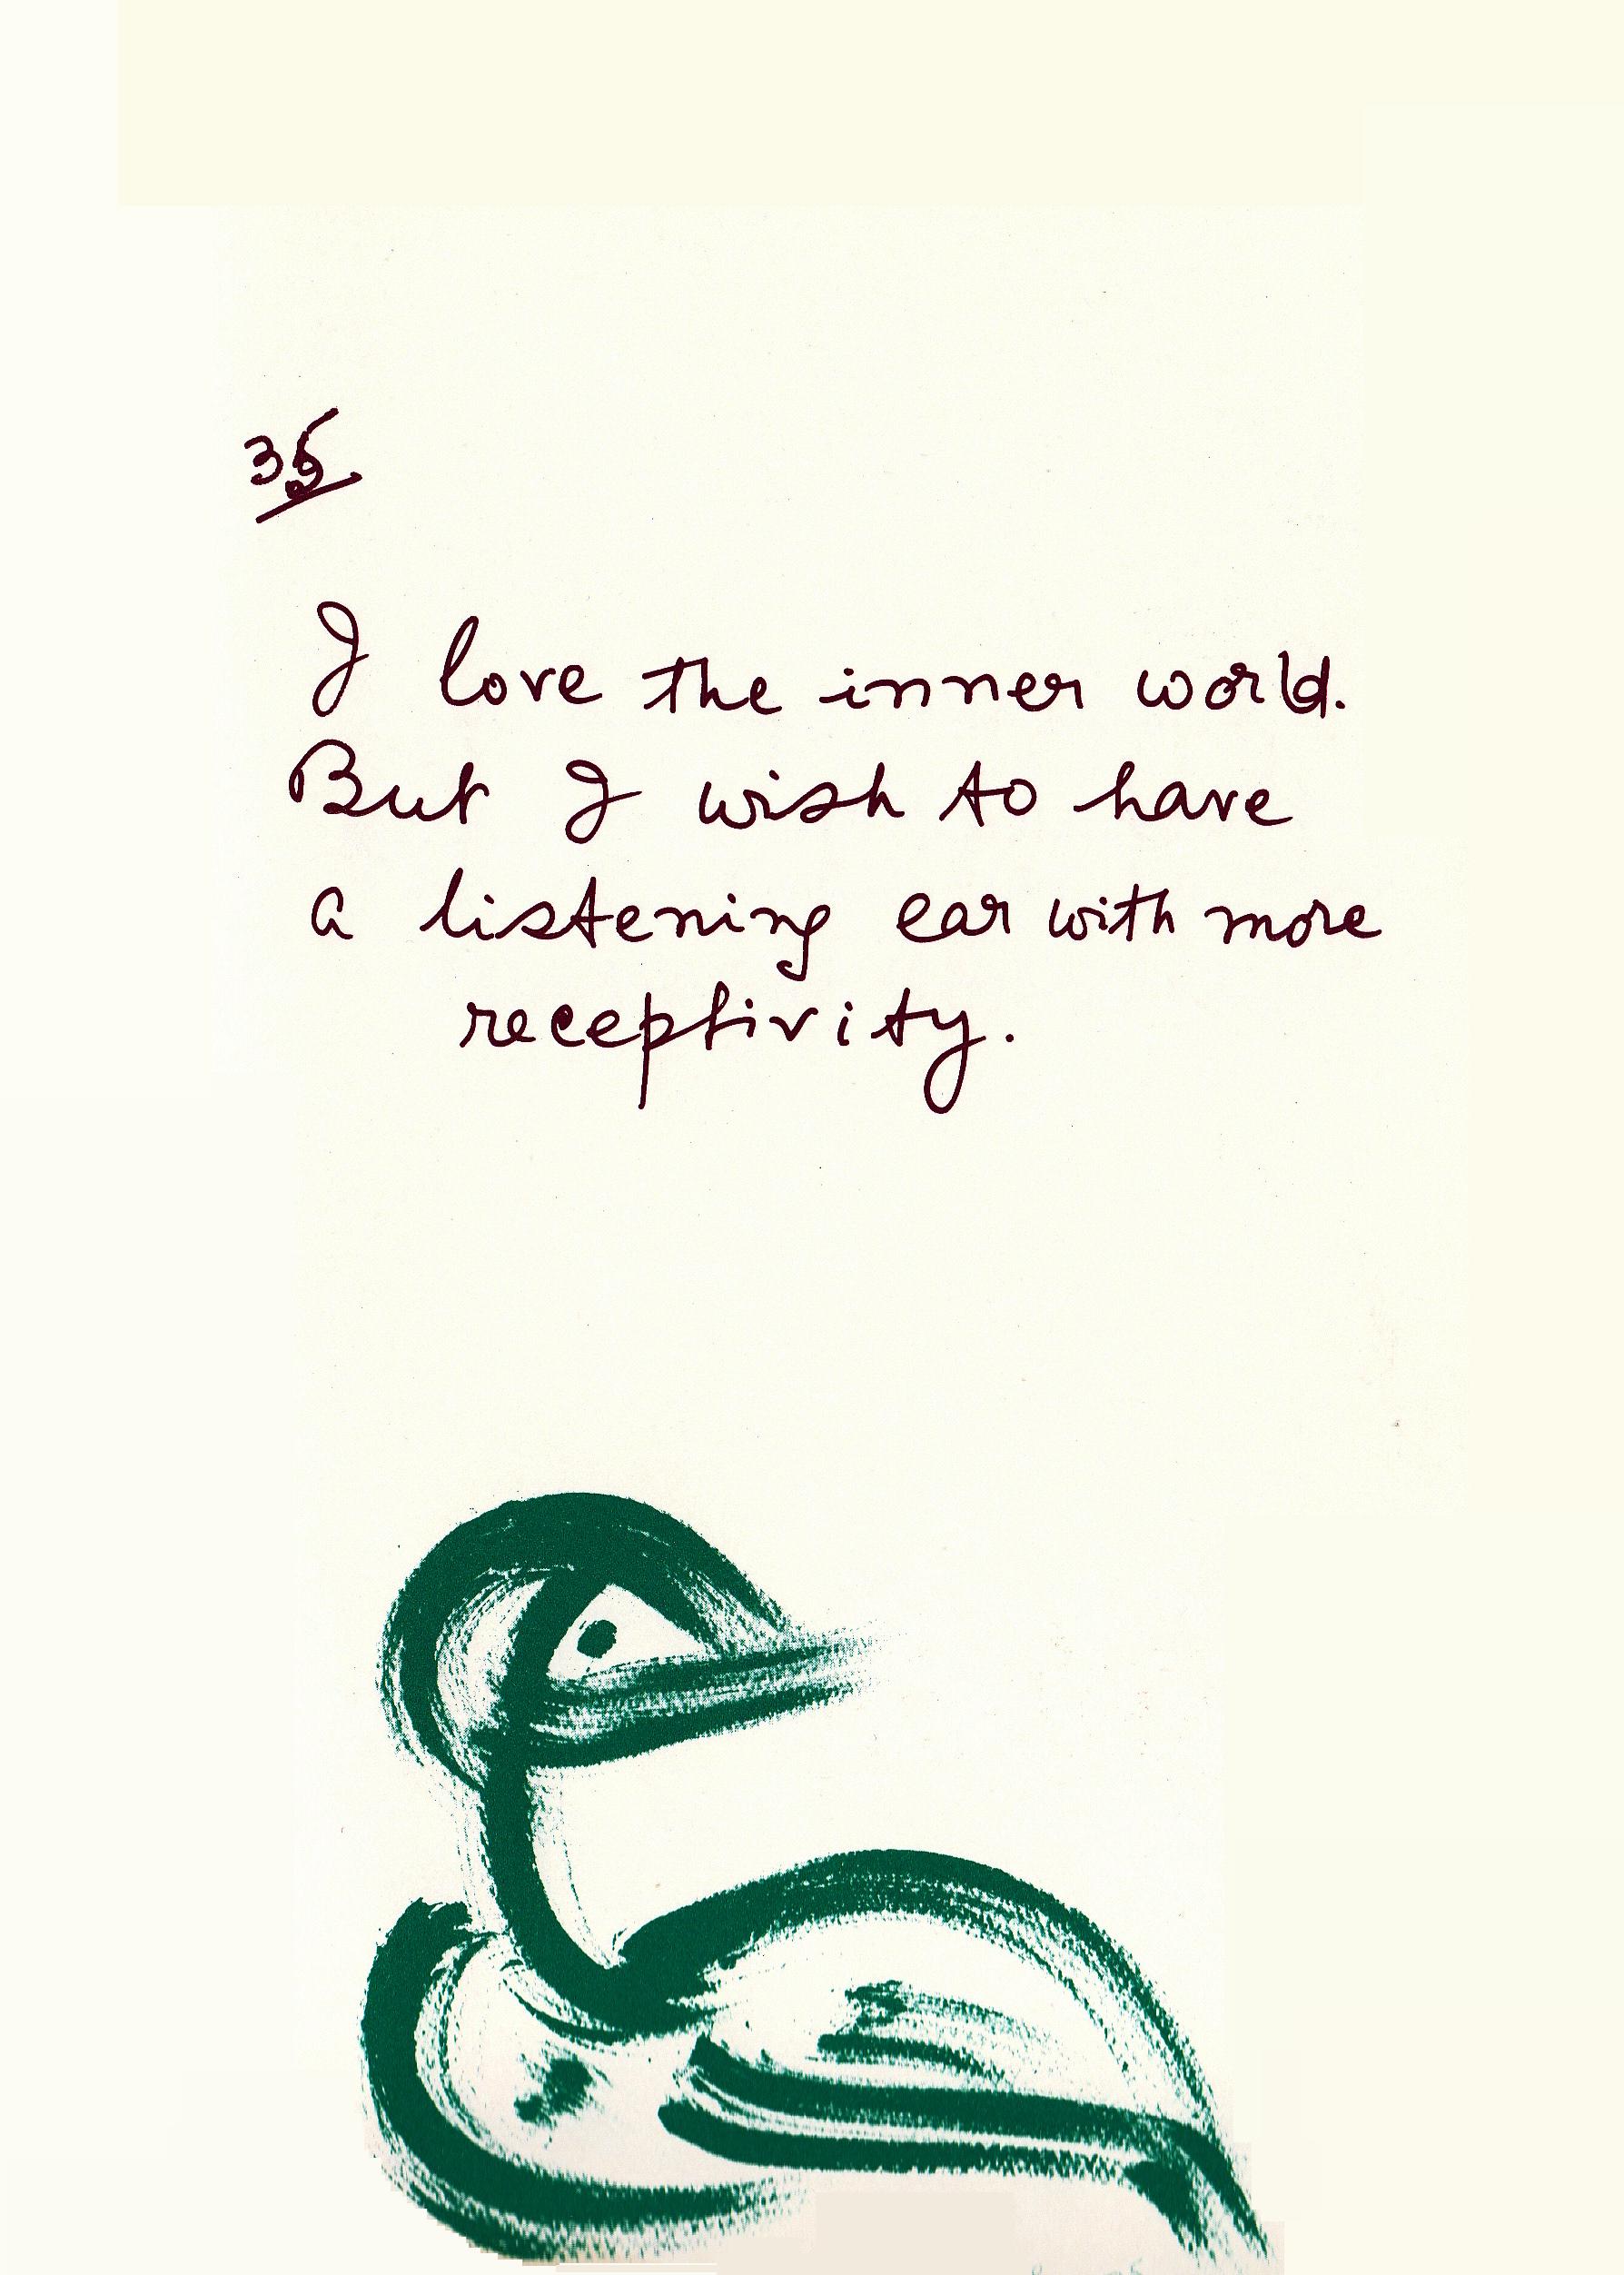 35
I love the inner world.
But I wish to have
a listening ear with more
receptivity.